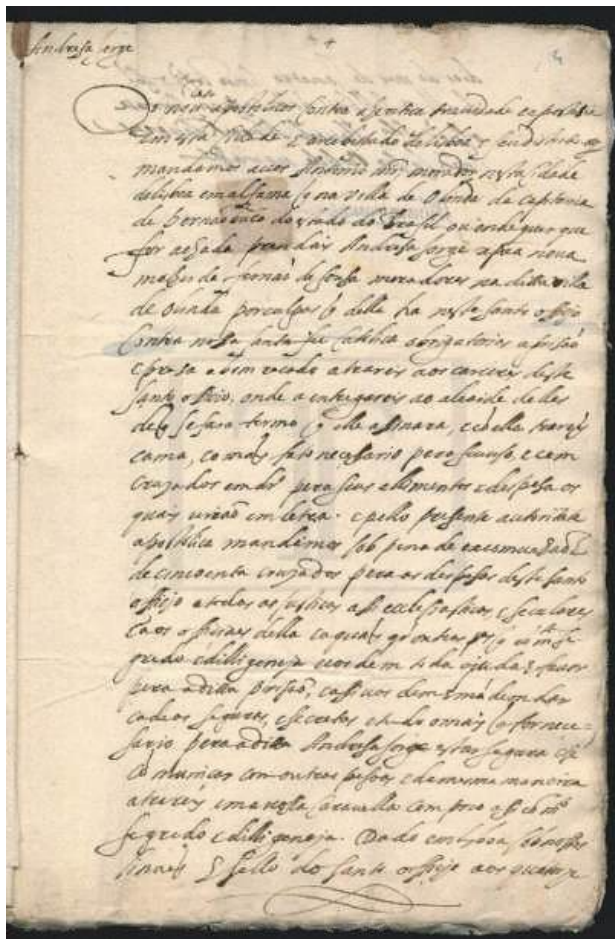 Andresa Jorge
Os inq.res apostolicos contra a heretica pravidade e apostasia
em esta cidade e arcebispado de lisboa e seu districto &
mandamos a vos Antonio miz morador nesta cidade
de lisboa em alfama q̃ na villa de Olinda da capitania
de Pernãobuco do estado do brasil ou onde quer que
for achada prendais Andresa Jorge xpãa nova
molher de fernaõ de sousa moradores na ditta villa
de Olinda por culpas q̃ della ha neste santo officio
contra nossa santa fee catholica obrigatorias a prisaõ
e presa a bom recado a trareis aos carceres deste
santo officio, onde a entregareis ao alcaide delles
de q̃ se fara termo q̃ elle assinara, e cõ ella trareis
cama, co mais fato necessario pera seu uso, e cem
cruzados em drº pera seus alimentos e despesa os
quais viraõ em letra. e pello presente autoridade
apostolica mandamos sob pena de excomunhaõ e
de cincoenta cruzados pera as despesas deste santo
officio a todas as justiças assi ecclesiasticas, e seculares
e aos officiaes dellas e a quaes q̃r outras pas q̃ cõ mto se
gredo e dilligencia vos dem toda ajuda & favor
pera a ditta prisaõ, e assi vos dem e mãdem dar
cadeas seguras, e secretas e tudo o mais q̃ for neces
sario pera a ditta Andresa Jorge estar segura e se nã
cõmunicar com outras pessoas e da mesma maneira
a trareis em a nossa caravella com preso assi cõ mto
segredo e dilligencia. Dado em lisboa sob nossos
sinaes & sello do santo officio aos